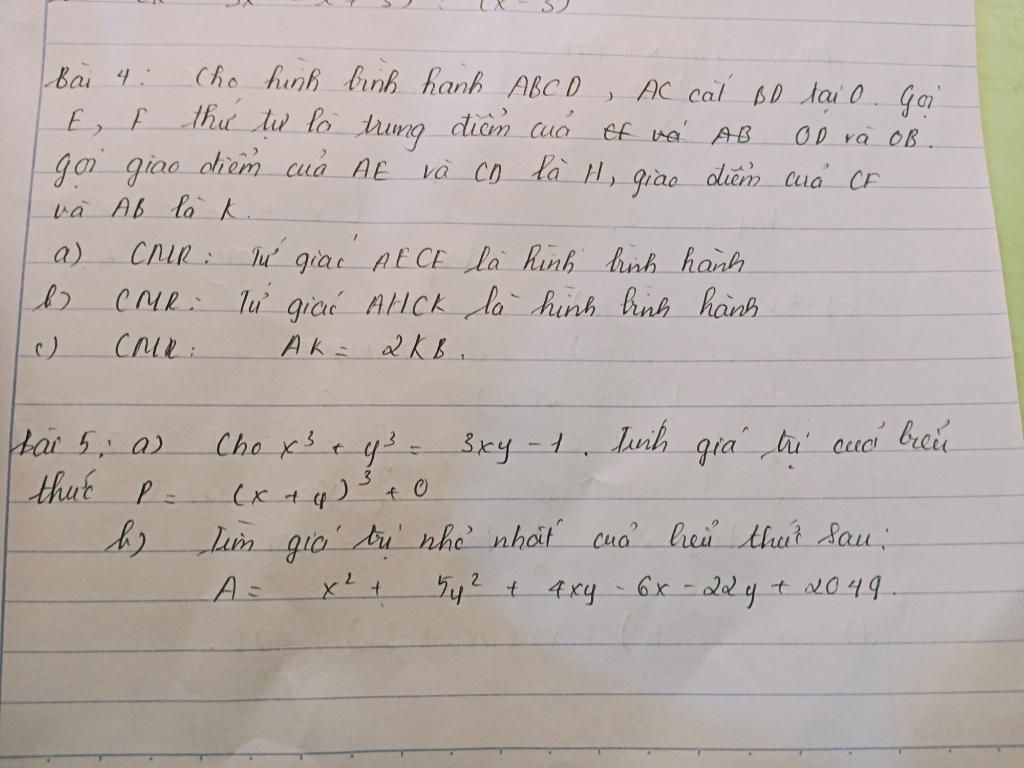 3x - x + 3) : (x - 3)
Bài 4 : Cho hình bình hành ABCD , AC cắt BD tại O. Gọi
E, F thứ tự là trung điểm của OD và OB.
gọi giao điểm của AE và CD là H, giao điểm của CF
và AB là K.
a) CMR : Tứ giác AECF là hình bình hành
b) CMR : Tứ giác AHCK là hình bình hành
c) CMR : AK = 2KB.
Bài 5 : a) Cho x³ + y³ = 3xy - 1. Tính giá trị của biểu
thức P = (x + y)³ + 0
b) Tìm giá trị nhỏ nhất của biểu thức sau :
A = x² + 5y² + 4xy - 6x - 22y + 2049.